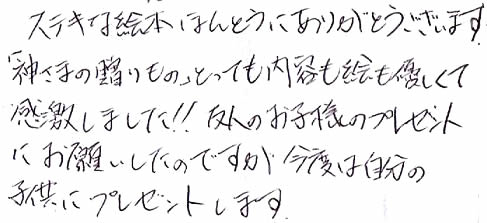 ステキな絵本ほんとうにありがとうございます
「神さまの贈りもの」とっても内容も絵も優しくて
感激しました!! 友人のお子様のプレゼント
にお願いしたのですが 今度は自分の
子供にプレゼントします